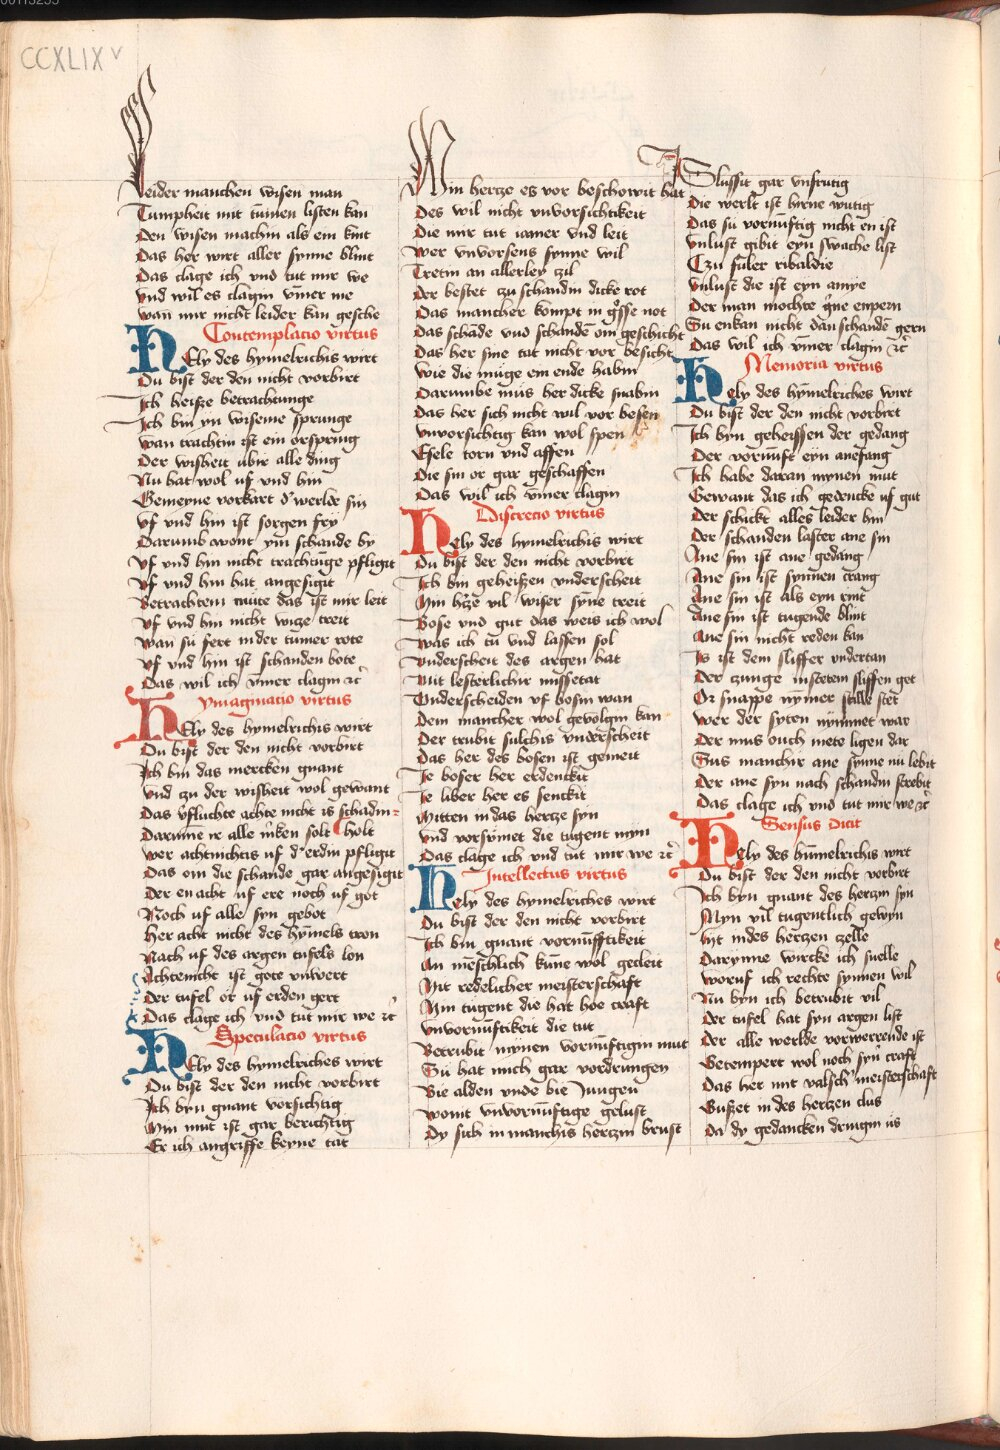 CCXLIX v
Leider manchen wisen man
Tumpheit mit tumen listen kan
Den wisen machin als ein kint
Das her wirt aller synne blint
Das clage ich vnd tut mir we
Vnd wil es clagin vmer me
wan mir nicht leider kan gesche
Contemplacio virtus
HEly des hymelrichis wirt
Du bist der den nicht vorbirt
Ich heisze betrachtunge
Ich bin yn wiseme sprunge
wan trachtin ist ein orspring
Der wisheit ubir alle ding
Nu hat wol uf vnd hin
Gemeyne vorkart d' werlde sin
Uf vnd hin ist sorgen fry
Darumb wont ym schande by
Uf vnd hin nicht trachtu̅ge pfligit
Uf vnd hin hat angesigit
Betrachtem mute das ist mir leit
Uf vnd hin nicht wize treit
wan su fert inder tumer rote
Uf vnd hin ist schanden bote
Das wil ich vm̅er clagin ꝛc
Ymaginacio virtus
HEly des hymelrichis wirt
Du bist der den nicht vorbirt
Ich bin das mercken gnant
Vnd zu der wisheit wol gewant
Das v̅fluchte achte nicht is schadin
Darum̅e ir alle m̅ken solt holt
wer achtnichtis uf d' erdin pfligit
Das em die schande gar angesigit
Der en acht uf ere noch uf got
Noch uf alle syn gebot
Her acht nicht des hym̅els tron
Nach uf des argen tufels lon
Achtenicht ist gote vnwert
Der tufel or uf erden gert
Das clage ich vnd tut mir we ꝛc
Speculacio virtus
HEly des hymelriches wirt
Du bist der den nicht vorbirt
Ich byn gnant vorsichtig
Min mut ist gar berichtig
Er ich angriffe keyne tat
Min hertze es vor beschowit hat
Des wil nicht vnvorsichtikeit
Die mir tut iamer vnd leit
wer vnvorsens synne wil
Tretin an allerley zil
Der bestet zu schandin dicke rot
Das mancher kompt in g'sse not
Das schade vnd schande om geschicht
Das her sine tat nicht vor besicht
wie die muge ein ende habin
Darumbe mus her dicke snabin
Das her sich nicht wil vor besen
Vnvorsichtig kan wol spen
Esele torn vnd affen
Die sin or gar geschaffen
Das wil ich vm̅er clagin
Discrecio virtus
HEly des hymelrichis wirt
Du bist der den nicht vorbirt
Ich bin geheiszen vnderscheit
Min h'ze vil wiser syne treit
Bose vnd gut das weis ich wol
was ich tu vnd lassen sol
Vnderscheit des argen hat
Mit lesterlichir missetat
Vnderscheiden uf bosin wan
Dem mancher wol gevolgin kan
Der trubit sulchis vnderscheit
Das her des bosen ist gemeit
Je boser her erdenckit
Je liber her es senckit
Mitten in das hertze syn
Vnd vorsumet die tugent myn
Das clage ich vnd tut mir we ꝛc
Intellectus virtus
Hely des hymelriches wirt
Du bist der den nicht vorbirt
Ich bin gnant vornufftikeit
An me̅schlich kun̅e wol gecleit
Mit redelicher meisterschaft
Min tugent die hat hoe craft
Vnvornu̅ftikeit die tut
Betrubit mynen vornu̅ftigin mut
Su hat mich gar vordrungen
Bie alden vnde bie Jungen
wont vnvornu̅ftige gelust
Dy sich in manchis hertzin brust
Slussit gar vnfrutig
Die werlt ist hirne wutig
Das su vornu̅ftig nicht en ist
Vnlust gibit eyn swache list
Czu fuler ribaldie
Vnlust die ist eyn amye
Der man mochte g'ne enpern
Su enkan nicht dan schanden gern
Das wil ich vm̅er clagin ꝛc
Memoria virtus
HEly des hym̅elriches wirt
Du bist der den nicht vorbirt
Ich byn geheissen der gedang
Der vornu̅ft eyn anefang
Ich habe daran mynen mut
Gewant das ich gedencke uf gut
Der schickt alles leider hin
Der schanden laster ane sin
Ane sin ist ane gedang
Ane sin ist synnen crang
Ane sin ist als eyn rint
Ane sin ist tugende blint
Ane sin nicht reden kan
Is ist dem sliffer vndertan
Der zunge instetem sliffen get
Or snappe nym̅er stille stet
wer der syten nymmet war
Der mus ouch mete ligen dar
Sus manchir ane synne nu lebit
Der ane syn nach schandin strebit
Das clage ich vnd tut mir we ꝛc
Sensus dicit
HEly des him̅elrichis wirt
Du bist der den nicht vorbirt
Ich byn gnant des hertzin syn
Myn vil tugentlich gewyn
lyt indes hertzen zelle
Darynne wircke ich snelle
Woruf ich rechte synnen wil
Nu byn ich betrubit vil
Der tufel hat syn argen list
Der alle werlde vorwerrende ist
Getempert wol noch syn̅ craft
Das her mit valsch' meisterschaft
Guszet in des hertzen clus
Da dy gedancken dringin us